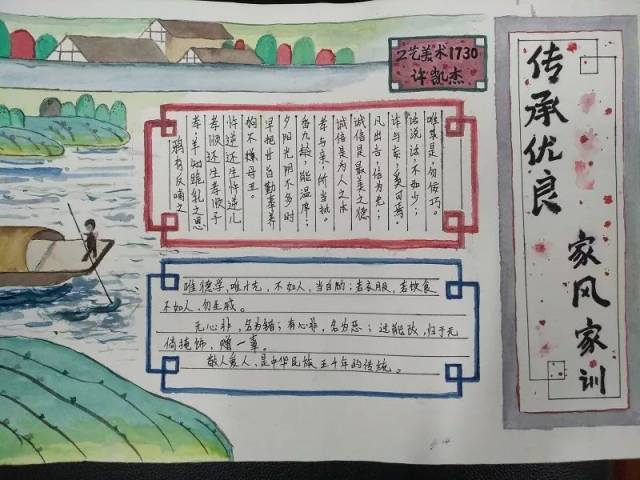 传承优良
家风家训
工艺美术1730
许凯杰
惟其是,勿佞巧。
话说话,不如少;
诈与妄,奚可焉。
凡出言,信为先;
诚信是最美之德
诚信是为人之本
孝与亲,所当执。
香九龄,能温席;
夕阳光阴不多时
早把甘旨勤奉养
狗不嫌母丑。
忤逆还生忤逆儿
孝顺还生孝顺子
孝,羊知跪乳之恩
鸦有反哺之
唯德学,唯才艺,不如人,当自励;若衣服,若饮食
不如人,勿生戚。
无心非,名为错;有心非,名为恶;过能改,归于无
倘掩饰,赠一辜。
敬人爱人,是中华民族五千年的传统。